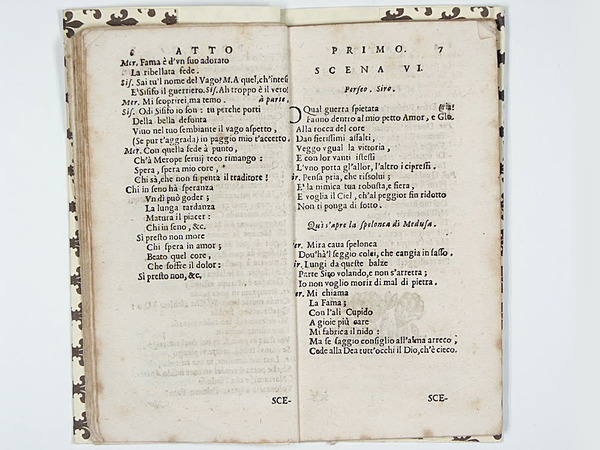 6 ATTO
Mer. Fama è d'vn suo adorato
La ribellata fede.
Sis. Sai tu'l nome del Vago? M. A quel, ch'intesi
E'Sisifo il guerriero. Sis. Ah troppo è il vero!
Mer. Mi scoprirei, ma temo. à parte.
Sis. Odi Sisifo io son: tu perche porti
Della bella defonta
Viuo nel tuo sembiante il vago aspetto,
(Se pur t'aggrada) in paggio mio t'accetto.
Mer. Con quella fede à punto,
Ch'à Merope seruij teco rimango:
Spera, spera mio core,
Chi sà, che non si penta il traditore!
Chi in seno hà speranza
Vn dì può goder;
La lunga tardanza
Matura il piacer:
Chi in seno, &c.
Sì presto non more
Chi spera in amor;
Beato quel core,
Che soffre il dolor:
Sì presto non, &c.
SCE-
PRIMO. 7
SCENA VI.
Perseo. Siro.
QVal guerra spietata
Fanno dentro al mio petto Amor, e Glo-
Alla rocca del core
Dan fierissimi assalti,
Veggo vgual la vittoria,
E con lor vanti istessi
L'vno porta gl'allor, l'altro i cipressi.
ir. Pensa pria, che risolui;
E' la nimica tua robusta, e fiera,
E voglia il Ciel, ch'al peggior fin ridotto
Non ti ponga di sotto.
Quì s'apre la spelonca di Medusa.
er. Mira caua spelonca
Dou'hà'l seggio colei, che cangia in sasso.
ir. Lungi da queste balze
Parte Siro volando, e non s'arretra;
Io non voglio morir di mal di pietra.
er. Mi chiama
La Fama;
Con l'ali Cupido
A gioie più care
Mi fabrica il nido:
Ma se saggio consiglio all'alma arreco,
Cede alla Dea tutt'occhi il Dio, ch'è cieco.
SCE-